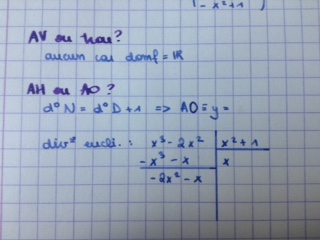 1 - x²+1 )
AV ou trou?
aucun car domf = ℝ
AH ou AO?
d°N = d°D + 1 => AO ≡ y =
div° eucli. : x³ - 2x² | x² + 1
- x³ - x | x
- 2x² - x